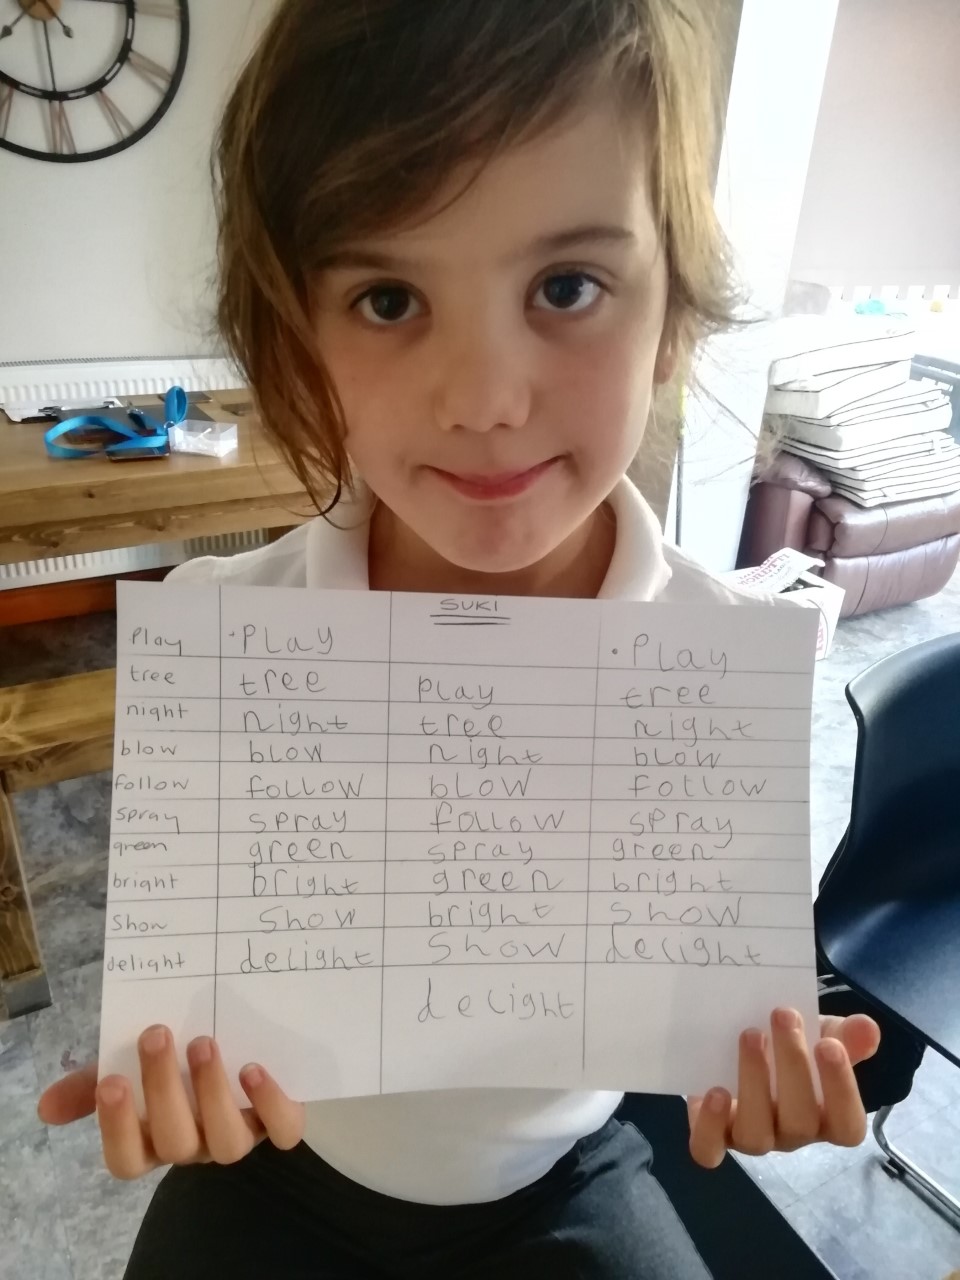 SUKI
Play .Play .Play
tree tree play tree
night night tree night
blow blow night blow
follow follow blow follow
spray spray follow spray
green green spray green
bright bright green bright
Show Show bright Show
delight delight Show delight
delight